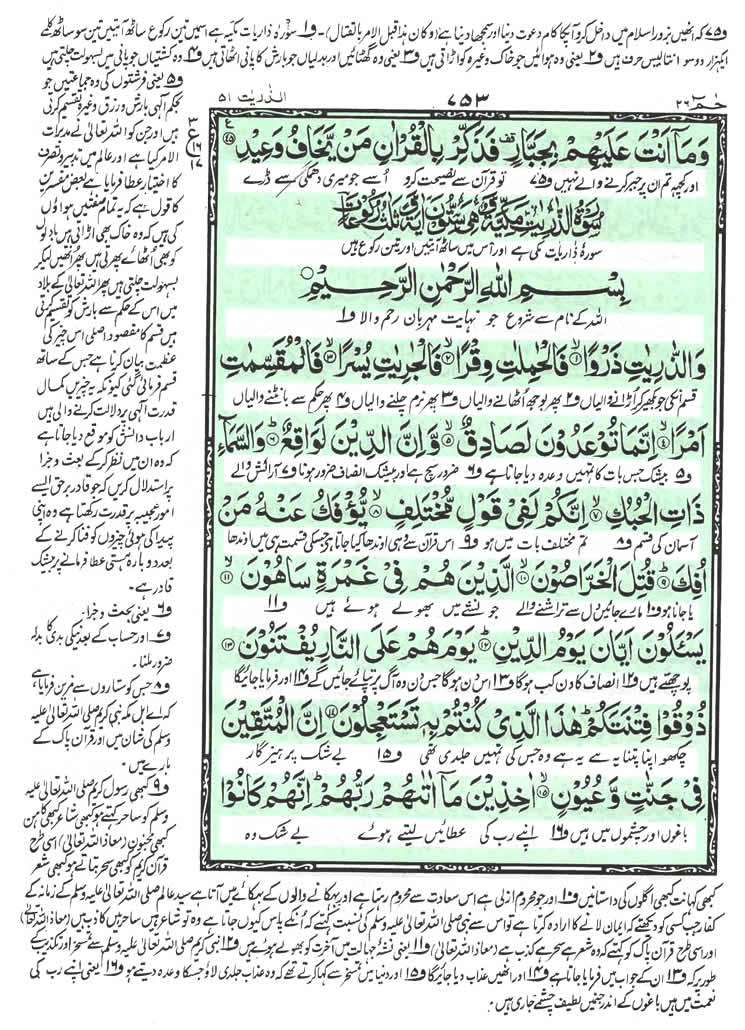 و۷۵ کہ انھیں بزور اسلام میں داخل کرو آپکا کام دعوت دینا اور سمجھا دینا ہے (وکان ہذا قبل الامر بالقتال)۔ و۱ سورۂ ذاریات مکیہ ہے اسمیں تین رکوع ساٹھ آیتیں تین سو ساٹھ کلمے
ایکہزار دو سو انتالیس حرف ہیں و۲ یعنی وہ ہوائیں جو خاک وغیرہ کو اڑاتی ہیں و۳ یعنی وہ گھٹائیں اور بدلیاں جو بارش کا پانی اٹھاتی ہیں و۴ وہ کشتیاں جو پانی میں بسہولت چلتی ہیں
حٰمٓ ۲۶
۷۵۳
الذّٰریٰت ۵۱
وَمَاۤ اَنْتَ عَلَیْهِمْ بِجَبَّارٍ فَذَكِّرْ بِالْقُرْاٰنِ مَنْ یَّخَافُ وَعِیْدِ ۴۵
اور کچھ تم ان پر جبر کرنے والے نہیں و۷۵ تو قرآن سے نصیحت کرو اُسے جو میری دھمکی سے ڈرے
سُوْرَةُ الذّٰرِیٰتِ مَكِّیَّةٌ وَّهِیَ سِتُّوْنَ اٰیَةً وَّثَلٰثُ رُكُوْعَاتٍ
سورۂ ذاریات مکی ہے اور اس میں ساٹھ آیتیں اور تین رکوع ہیں
بِسْمِ اللّٰهِ الرَّحْمٰنِ الرَّحِیْمِ
اللہ کے نام سے شروع جو نہایت مہربان رحم والا و۱
وَالذّٰرِیٰتِ ذَرْوًا ۱ فَالْحٰمِلٰتِ وِقْرًا ۲ فَالْجٰرِیٰتِ یُسْرًا ۳ فَالْمُقَسِّمٰتِ
قسم انکی جو بکھیر کر اڑانے والیاں و۲ پھر بوجھ اُٹھانے والیاں و۳ پھر نرم چلنے والیاں و۴ پھر حکم سے بانٹنے والیاں
اَمْرًا ۴ اِنَّمَا تُوْعَدُوْنَ لَصَادِقٌ ۵ وَّاِنَّ الدِّیْنَ لَوَاقِعٌ ۶ وَالسَّمَآءِ
و۵ بیشک جس بات کا تمہیں وعدہ دیا جاتا ہے و۶ ضرور سچ ہے اور بیشک انصاف ضرور ہونا و۷ آرائش والے
ذَاتِ الْحُبُكِ ۷ اِنَّكُمْ لَفِیْ قَوْلٍ مُّخْتَلِفٍ ۸ یُّؤْفَكُ عَنْهُ مَنْ
آسمان کی قسم و۸ تم مختلف بات میں ہو و۹ اس قرآن سے وہی اوندھا کیا جاتا ہے جسکی قسمت ہی میں اوندھا
اُفِكَ ۹ قُتِلَ الْخَرّٰصُوْنَ ۱۰ الَّذِیْنَ هُمْ فِیْ غَمْرَةٍ سَاهُوْنَ ۱۱
یا جانا ہو و۱۰ مارے جائیں دل سے تراشنے والے جو نشے میں بھولے ہوئے ہیں و۱۱
یَسْـَٔلُوْنَ اَیَّانَ یَوْمُ الدِّیْنِ ۱۲ یَوْمَ هُمْ عَلَی النَّارِ یُفْتَنُوْنَ ۱۳
پوچھتے ہیں و۱۲ انصاف کا دن کب ہوگا و۱۳ اس دن ہوگا جس دن وہ آگ پر تپائے جائیں گے و۱۴ اور فرمایا جائیگا
ذُوْقُوْا فِتْنَتَكُمْ هٰذَا الَّذِیْ كُنْتُمْ بِهٖ تَسْتَعْجِلُوْنَ ۱۴ اِنَّ الْمُتَّقِیْنَ
چکھو اپنا تپنا یہ ہے وہ جس کی تمہیں جلدی تھی و۱۵ بے شک پرہیزگار
فِیْ جَنّٰتٍ وَّعُیُوْنٍ ۱۵ اٰخِذِیْنَ مَاۤ اٰتٰىهُمْ رَبُّهُمْ اِنَّهُمْ كَانُوْا
باغوں اور چشموں میں ہیں و۱۶ اپنے رب کی عطائیں لیتے ہوئے بے شک وہ
و۵ یعنی فرشتوں کی وہ جماعتیں جو
بحکم الٰہی بارش و رزق وغیرہ تقسیم کرتی
ہیں اور جن کو اللہ تعالیٰ نے مدبرات
الامر کیا ہے اور عالم میں تدبیر و تصرف
کا اختیار عطا فرمایا ہے بعض مفسرین
کا قول ہے کہ یہ تمام صفتیں ہواؤں
کی ہیں کہ وہ خاک بھی اڑاتی ہیں بادلوں
کو بھی اُٹھائے پھرتی ہیں پھر انھیں لیکر
بسہولت چلتی ہیں پھر اللہ تعالیٰ کے بلاد
میں اس کے حکم سے بارش کو تقسیم کرتی
ہیں قسم کا مقصود اصلی اس چیز کی
عظمت بیان کرنا ہے جس کے ساتھ
قسم فرمائی گئی کیونکہ یہ چیزیں کمال
قدرت الٰہی پر دلالت کرنے والی ہیں
ارباب دانش کو موقع دیا جاتا ہے
کہ وہ ان میں نظر کر کے بعث و جزا
پر استدلال کریں کہ جو قادر برحق ایسے
امور عجیبہ پر قدرت رکھتا ہے وہ اپنی
پیدا کی ہوئی چیزوں کو فنا کرنے کے
بعد دوبارہ ہستی عطا فرمانے پر بیشک
قادر ہے۔
و۶ یعنی بعث و جزا۔
و۷ اور حساب کے بعد نیکی بدی کا بدلہ
ضرور ملنا۔
و۸ جس کو ستاروں سے مزین فرمایا ہے
کہ اے اہل مکہ نبی کریم صلی اللہ تعالیٰ علیہ
وسلم کی شان میں اور قرآن پاک کے
بارے میں۔
و۹ کبھی رسول کریم صلی اللہ تعالیٰ علیہ
وسلم کو ساحر کہتے ہو کبھی شاعر کبھی کاہن
کبھی مجنون (معاذ اللہ تعالیٰ) اسی طرح
قرآن کریم کو کبھی سحر بتاتے ہو کبھی شعر
کبھی کہانت کبھی اگلوں کی داستانیں و۱۰ اور جو محروم ازلی ہے اس سعادت سے محروم رہتا ہے اور بہکانے والوں کے بہکائے میں آتا ہے سید عالم صلی اللہ تعالیٰ علیہ وسلم کے زمانہ کے
کفار جب کسی کو دیکھتے کہ ایمان لانے کا ارادہ کرتا ہے تو اس سے نبی صلی اللہ تعالیٰ علیہ وسلم کی نسبت کہتے کہ اُنکے پاس کیوں جاتا ہے وہ تو شاعر ہیں ساحر ہیں کاذب ہیں (معاذ اللہ تعالیٰ)
اور اسی طرح قرآن پاک کو کہتے کہ وہ شعر ہے سحر ہے کذب ہے (معاذ اللہ تعالیٰ) و۱۱ یعنی نشۂ جہالت میں آخرت کو بھولے ہوئے ہیں و۱۲ نبی کریم صلی اللہ تعالیٰ علیہ وسلم سے تمسخر اور تکذیب کے
طور پر کہ و۱۳ ان کے جواب میں فرمایا جاتا ہے و۱۴ اور انھیں عذاب دیا جائیگا و۱۵ اور دنیا میں تمسخر سے کہا کرتے تھے کہ وہ عذاب جلدی لاؤ جسکا وعدہ دیتے ہو و۱۶ یعنی اپنے رب کی
نعمت میں ہیں باغوں کے اندر جنمیں لطیف چشمے جاری ہیں۔